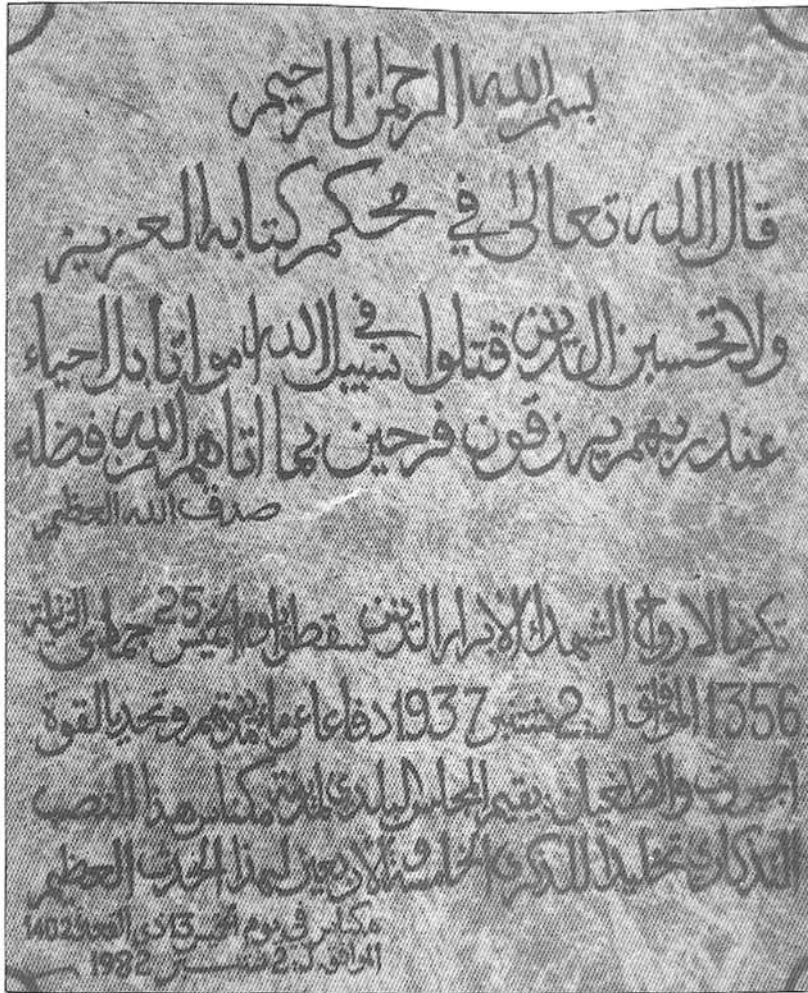 بسم الله الرحمن الرحيم
قال الله تعالى في محكم كتابه العزيز
ولا تحسبن الذين قتلوا في سبيل الله امواتا بل احياء
عند ربهم يرزقون فرحين بما اتاهم الله من فضله
صدق الله العظيم
تكريما لارواح الشهداء الابرار الذين سقطوا يوم الخميس 25 جمادى الثانية
1356 الموافق ل 2 شتنبر 1937 دفاعا عن ماء مدينتهم وتحديا لقوة
الجبروت والطغيان يقيم المجلس البلدي لمدينة مكناس هذا النصب
التذكاري تخليدا للذكرى الخامسة والاربعين لهذا الحدث العظيم
مكناس في يوم الخميس 13 ذي القعدة 1402
الموافق ل: 2 شتنبر 1982